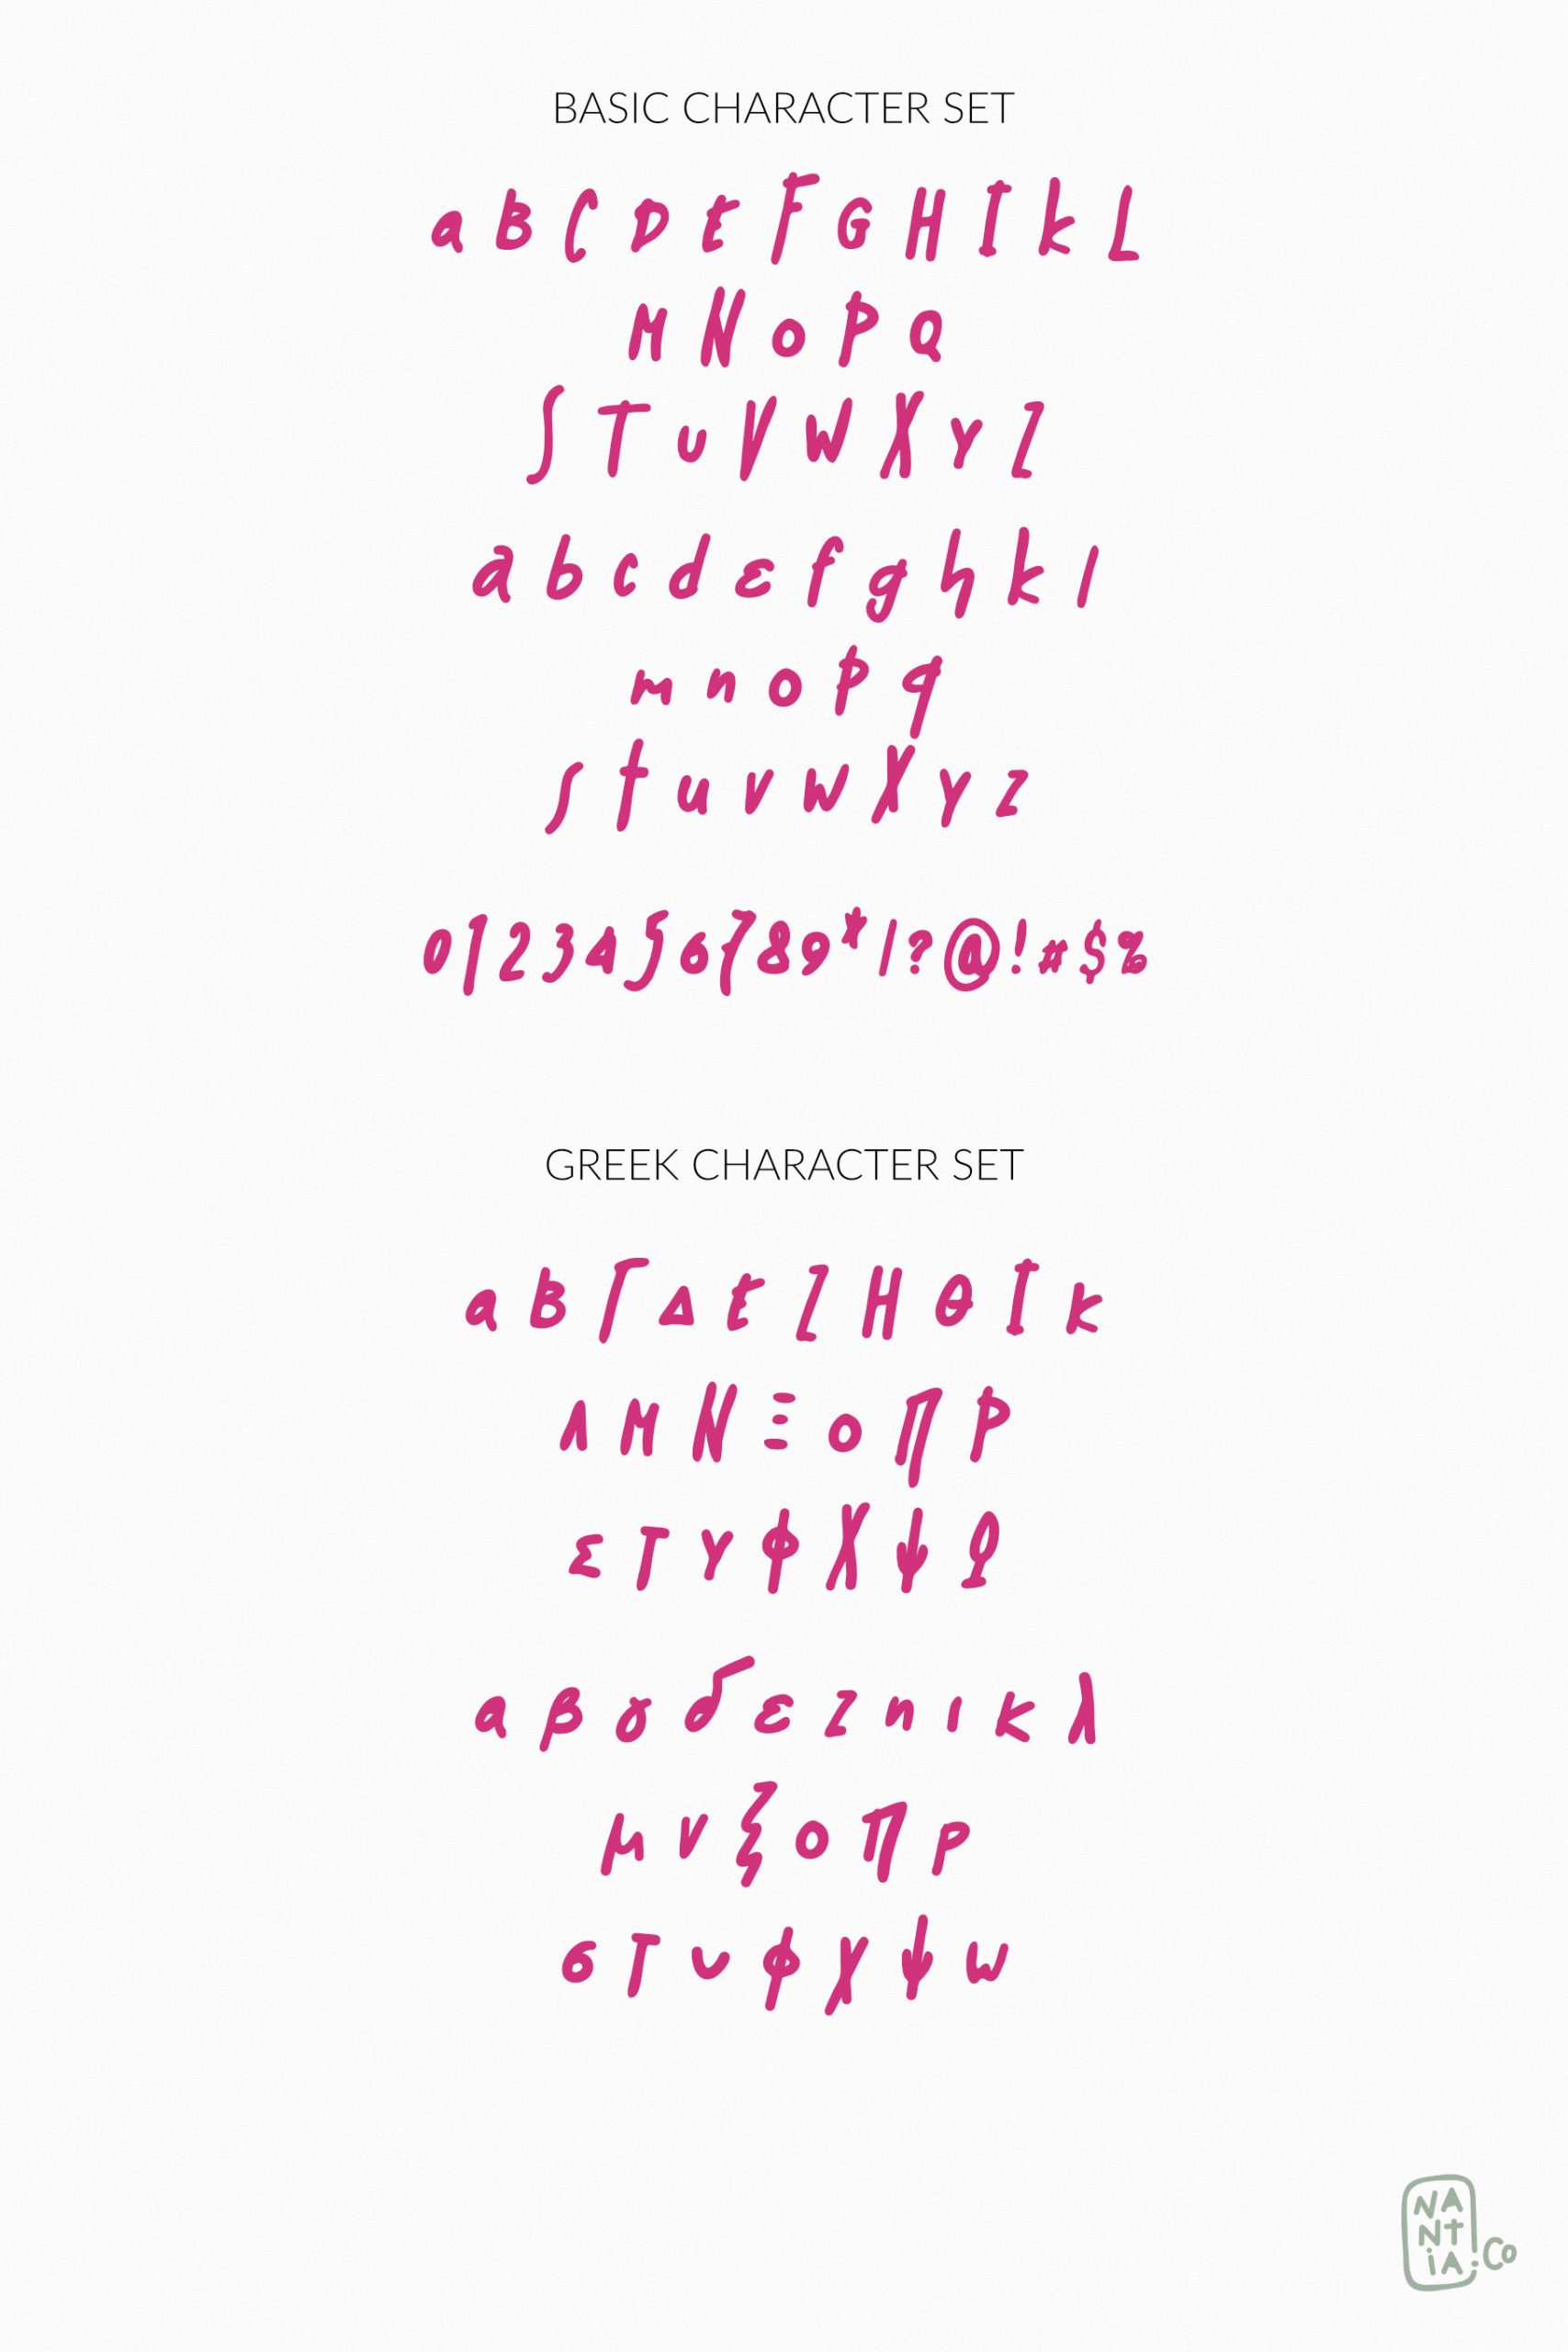 BASIC CHARACTER SET
a B C D E F G H I k L
M N o P Q
S T u V W X Y Z
a b c d e f g h k l
m n o p q
s t u v w X y z
0123456789*/?@!#$%
GREEK CHARACTER SET
α Β Γ Δ Ε Ζ Η Θ Ι κ
Λ Μ Ν Ξ ο Π Ρ
Σ Τ Υ Φ Χ Ψ Ω
α β γ δ ε ζ η ι κ λ
μ ν ξ ο π ρ
σ τ υ φ χ ψ ω
NA
Nt
iA.Co